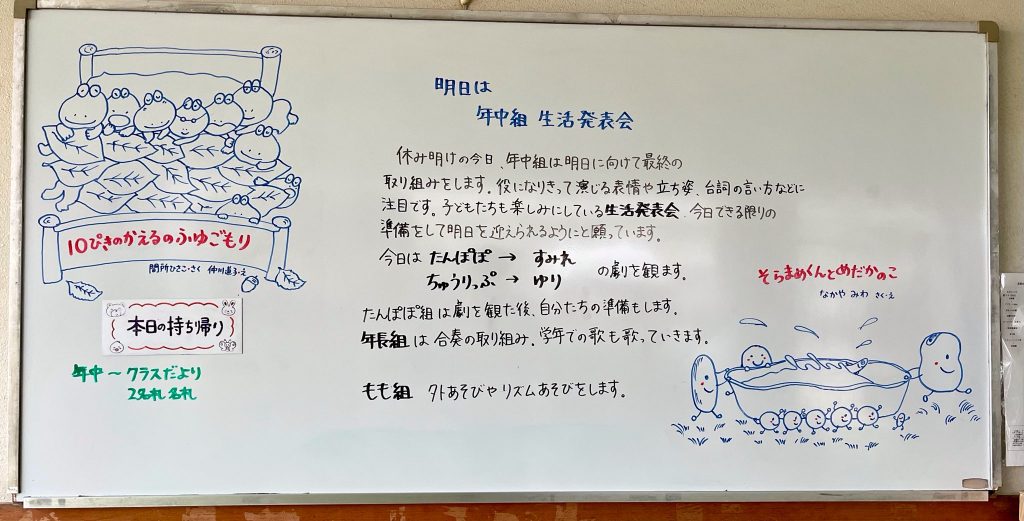 明日は
年中組 生活発表会
休み明けの今日、年中組は明日に向けて最終の
取り組みをします。役になりきって演じる表情や立ち姿、台詞の言い方などに
注目です。子どもたちも楽しみにしている生活発表会、今日できる限りの
準備をして明日を迎えられるようにと願っています。
今日は たんぽぽ → すみれ
ちゅうりっぷ → ゆり の劇を観ます。
たんぽぽ組は劇を観た後、自分たちの準備もします。
年長組は合奏の取り組み、学年での歌も歌っていきます。
もも組 外あそびやリズムあそびをします。
10ぴきのかえるのふゆごもり
間所ひさこ・さく 仲川道子・え
本日の持ち帰り
年中〜クラスだより
名札
そらまめくんとめだかのこ
なかや みわ さく・え